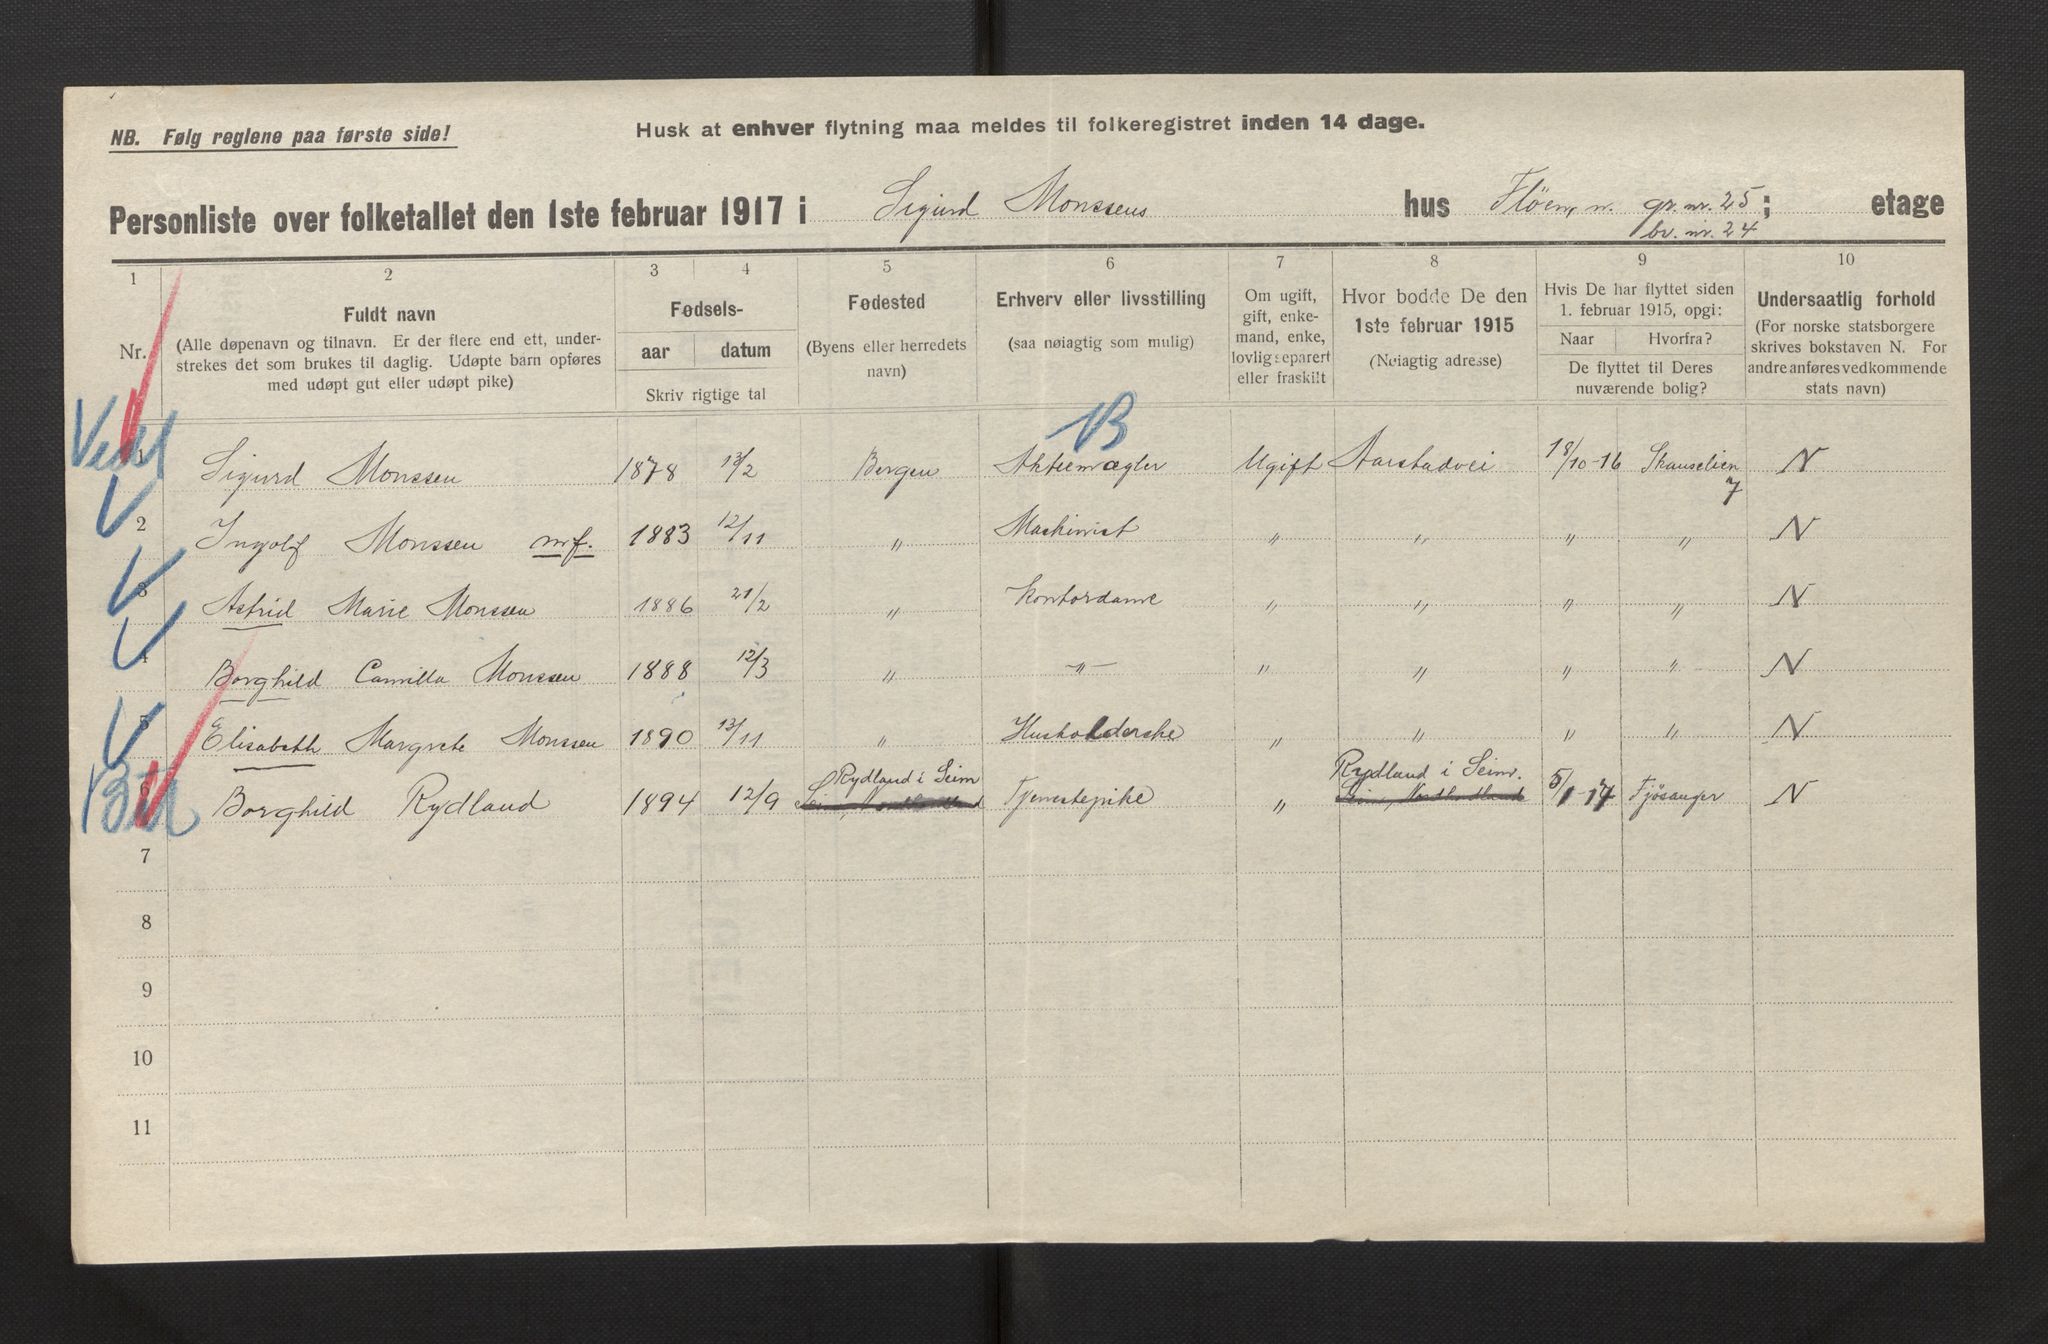 NB. Følg reglene paa første side!
Husk at enhver flytning maa meldes til folkeregistret inden 14 dage.
Personliste over folketallet den 1ste februar 1917 i Sigurd Monssens hus Fløen, n. gr. nr. 25 ; etage
bv. nr. 24
1 2 3 4 5 6 7 8 9 10
Nr.
Fuldt navn
(Alle døpenavn og tilnavn. Er der flere end ett, under-
strekes det som brukes til daglig. Udøpte barn opføres
med udøpt gut eller udøpt pike)
Fødsels-
aar datum
Skriv rigtige tal
Fødested
(Byens eller herredets
navn)
Erhverv eller livsstilling
(saa nøiagtig som mulig)
Om ugift,
gift, enke-
mand, enke,
lovlig separert
eller fraskilt
Hvor bodde De den
1ste februar 1915
(Nøiagtig adresse)
Hvis De har flyttet siden
1. februar 1915, opgi:
Naar Hvorfra?
De flyttet til Deres
nuværende bolig?
Undersaatlig forhold
(For norske statsborgere
skrives bokstaven N. For
andre anføres vedkommende
stats navn)
B
1 Sigurd Monssen 1878 13/2 Bergen Aktiemægler Ugift Aarstadvei 18/10-16 Skanselien 7 N
2 Ingolf Monssen mf. 1883 12/11 " Maskinist " " " " N
3 Astrid Marie Monssen 1886 21/2 " Kontordame " " " " N
4 Borghild Camilla Monssen 1888 12/3 " -"- " " " " N
5 Elisabeth Margrete Monssen 1890 13/11 " Husholderske " " " " N
6 Borghild Rydland 1894 12/9 Rydland i Seim Tjenestepike " Rydland i Seim. 5/1-17 Fjøsanger N
7
8
9
10
11